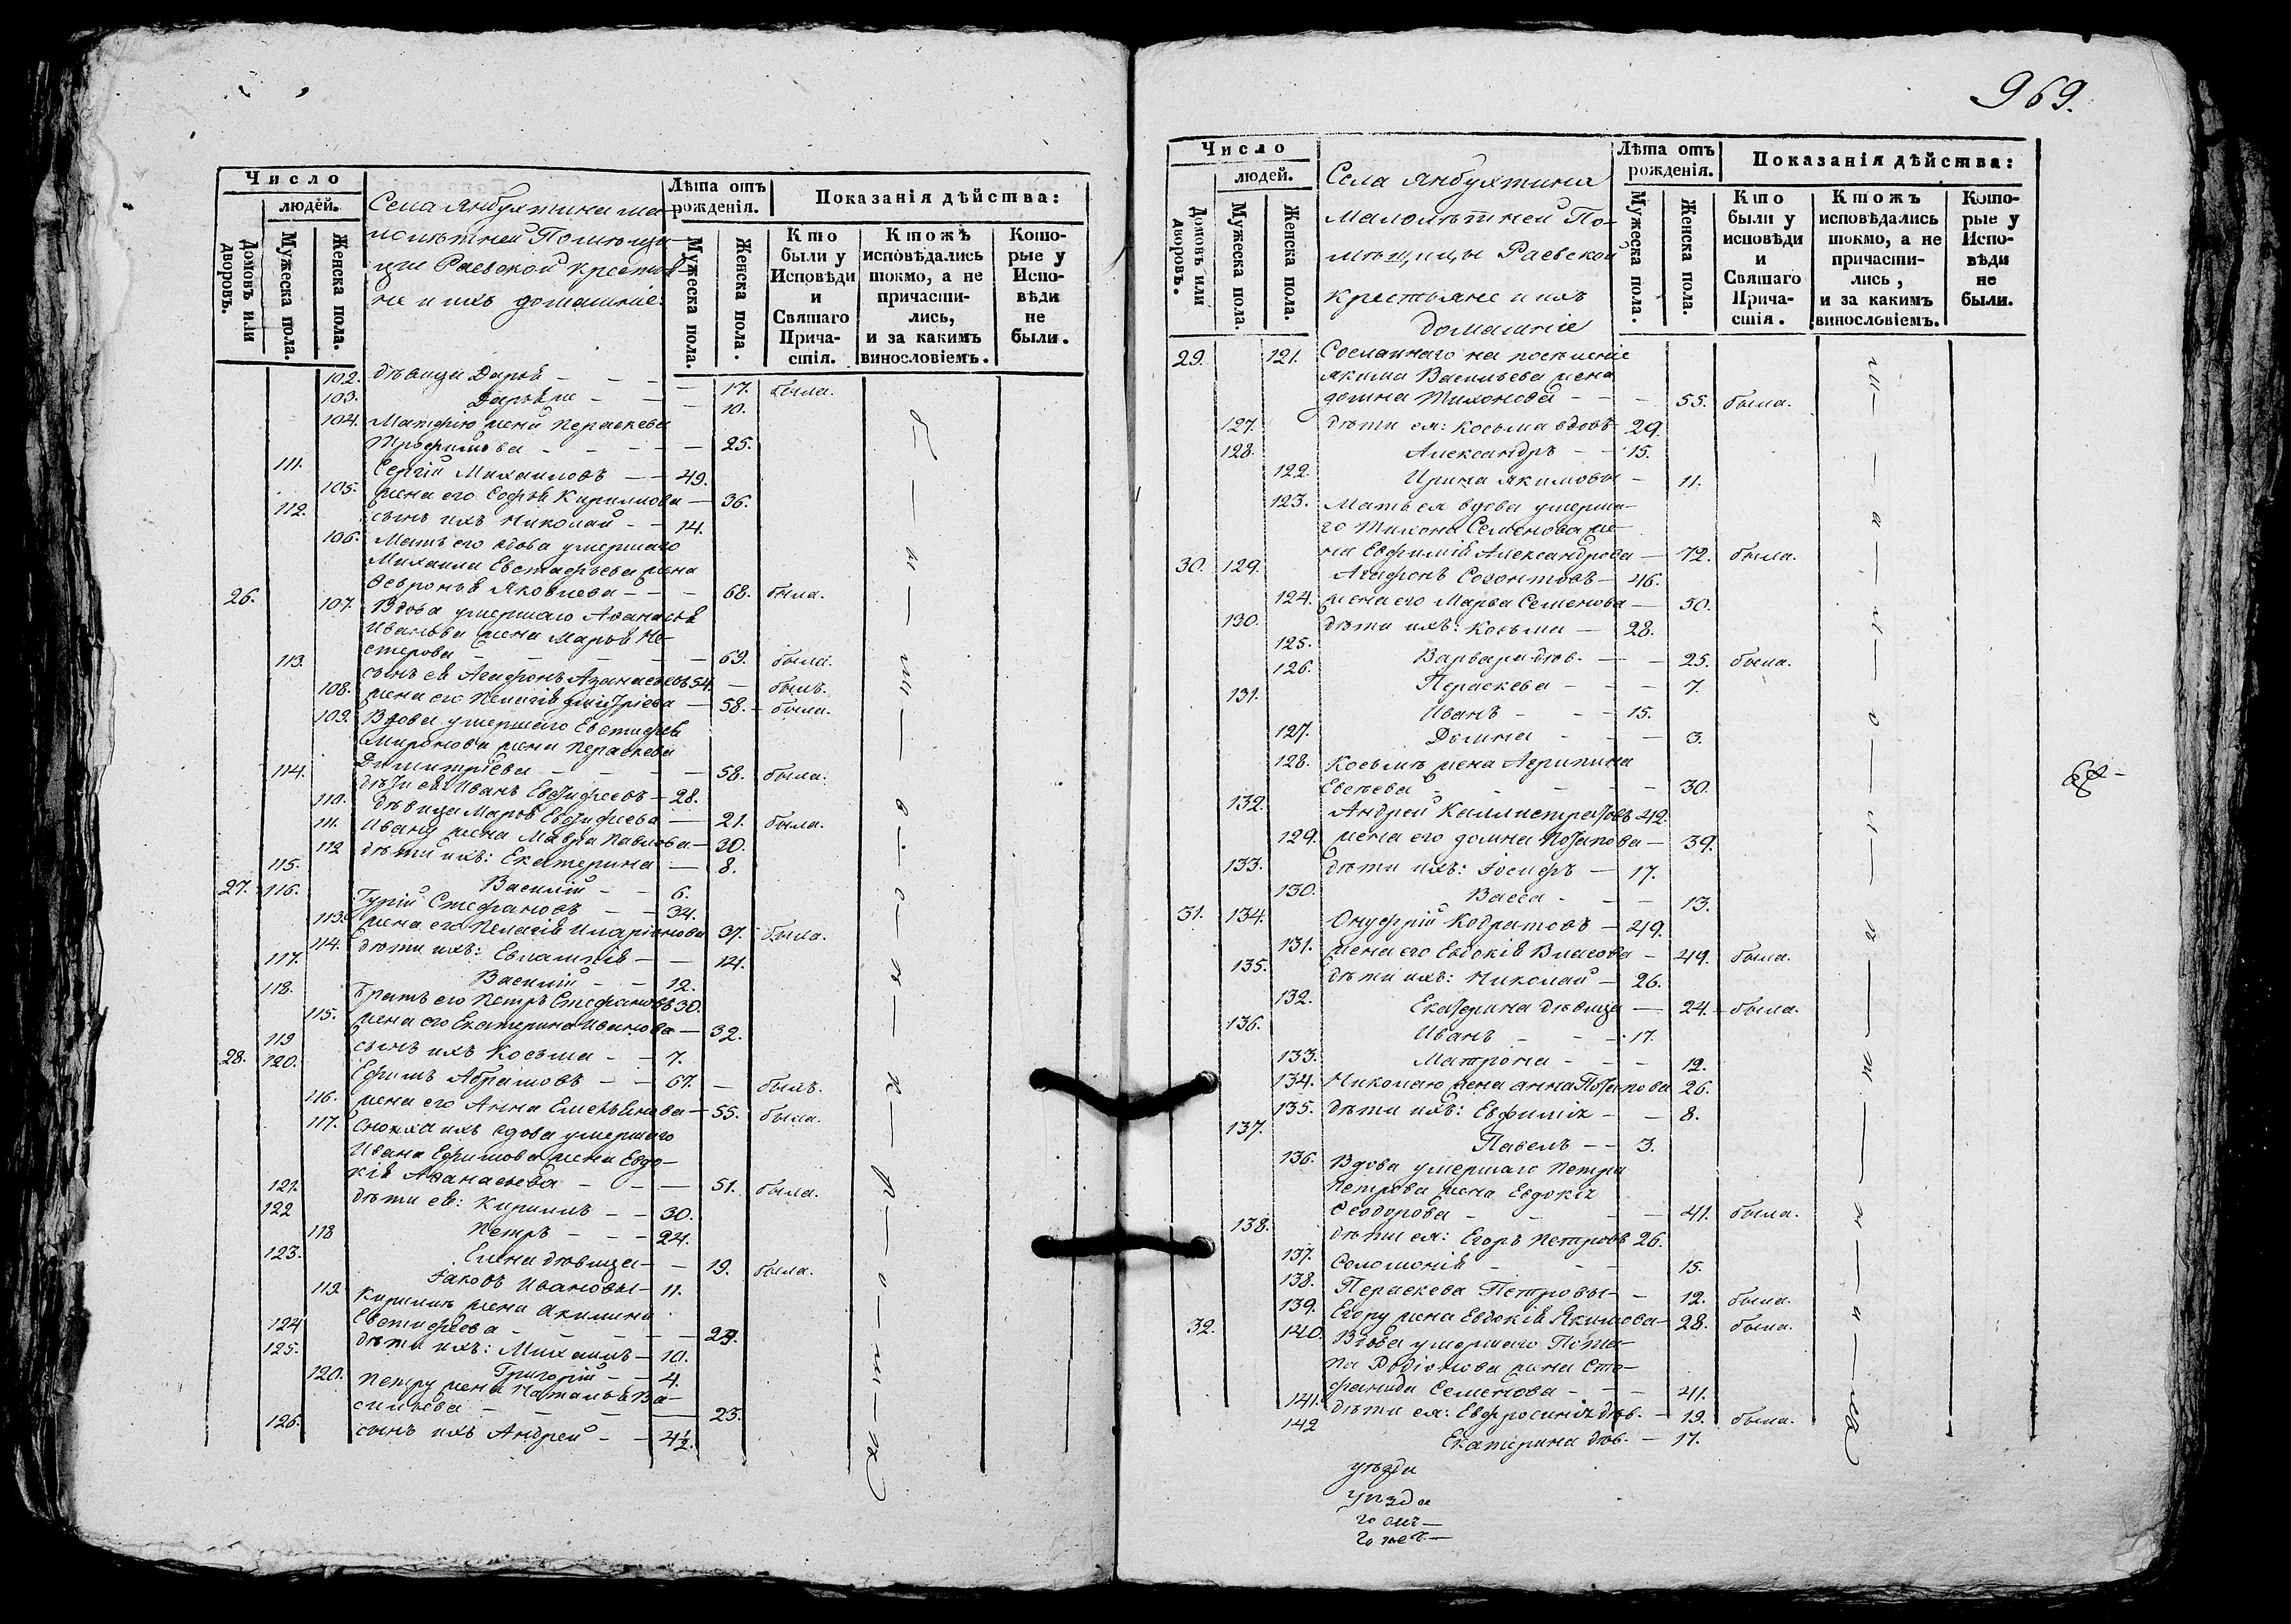 Число
людей.
Домовъ или дворовъ.
Мужеска пола.
Женска пола.
Села Янбухтина ма-
лолѣтней Помѣщи-
цы Раевской крестья-
не и ихъ домашніе
Лѣта отъ рожденія.
Мужеска пола.
Женска пола.
Показанія дѣйства:
Кто были у Исповѣди и Святаго Причастія.
Ктожъ исповѣдались токмо, а не причастились, и за какимъ винословіемъ.
Которые у Исповѣди не были.
102. дѣвица Дарья - - - 17. была.
103. Дарья же - - - 10.
104. Матфѣю жена Параскева
Трофимова - - - - 25.
111. Сергій Михайловъ - - 49.
105. жена его Софья Кириллова - 36.
112. сынъ ихъ Николай - - 14.
106. Мать его вдова умершаго
Михаила Евстафьева жена
Февронья Яковлева - - - 68. была.
26. 107. Вдова умершаго Афанасія
Иванова жена Марья Не-
стерова - - - - - 69. была.
113. сынъ ея Агафонъ Афанасьевъ 54. - былъ.
108. жена его Пелагія Дмитріева - 58. - была.
109. Вдова умершаго Евстафія
Миронова жена Параскева
Димитріева - - - - 58. была.
114. дѣти ея: Иванъ Евстафьевъ - 28.
110. дѣвица Марья Евстафьева - 21. была.
111. Ивану жена Мавра Павлова - 30.
112 дѣти ихъ: Екатерина - 8.
115. Василій - - 6.
27. 116. Гурій Стефановъ - - 34.
113. жена его Пелагія Иларіонова 37. была.
114. дѣти ихъ: Евлампія - - 14.
117. Василій - - 12.
118. братъ его Петръ Стефановъ 30.
115. жена его Екатерина Иванова - 32.
119 сынъ ихъ Косьма - - 7.
28. 120. Ефимъ Абрамовъ - - 67. - былъ.
116. жена его Анна Емельянова - 55. была.
117. Сноха ихъ вдова умершаго
Ивана Ефимова жена Евдо-
кія Афанасьева - - - 51. была.
121. дѣти ея: Кириллъ - - 30.
122 Петръ - - - 24.
118 Елена дѣвица - - 19. была.
123. Іаковъ Ивановы - 11.
119. Кириллу жена Акилина
Евстафьева - - - - 29.
124 дѣти ихъ: Михаилъ - 10.
125. Григорій - - 4.
120. Петру жена Наталья Ва-
сильева - - - - 23.
126. сынъ ихъ Андрей - - 4½.
969.
Число
людей.
Домовъ или дворовъ.
Мужеска пола.
Женска пола.
Села Янбухтина
Малолѣтней По-
мѣщицы Раевской
крестьяне и ихъ
домашніе
Лѣта отъ рожденія.
Мужеска пола.
Женска пола.
Показанія дѣйства:
Кто были у исповѣди и Святаго Причастія.
Ктожъ исповѣдались токмо, а не причастились, и за какимъ винословіемъ.
Которые у Исповѣди не были.
29. 121. Сосланнаго на поселеніе
Якима Васильева жена
Домна Тихонова - - - 55. была.
127. дѣти ея: Косьма вдовъ 29.
128. Александръ - - 15.
122. Ирина Якимовы - 11.
123. Мать ея вдова умерша-
го Тихона Семенова же-
на Евфимія Александрова - 72. была.
30. 129. Агафонъ Созонтовъ - 46.
124. жена его Марья Семенова - 50.
130. дѣти ихъ: Косьма - 28.
125. Варвара дѣв. - - 25. была.
126. Параскева - - - 7.
131. Иванъ - - - 15.
127. Домна - - - 3.
128. Косьмѣ жена Агрипина
Евсѣева - - - - 30.
132. Андрей Каллистратовъ 42.
129. жена его Домна Потапова - 39.
133. дѣти ихъ: Іосифъ - 17.
130. Васса - - - 13.
31. 134. Онуфрій Кодратовъ - 49.
131. жена его Евдокія Власова - 49. была.
135. дѣти ихъ: Николай - 26.
132. Екатерина дѣвица - 24. - была.
136. Иванъ - - - 17.
133. Матрона - - - 12.
134. Николаю жена Анна Потапова 26.
135. дѣти ихъ: Евфимія - - 8.
137. Павелъ - - 3.
136. Вдова умершаго Петра
Петрова жена Евдокія
Ѳеодорова - - - - 41. была.
138. дѣти ея: Егоръ Петровъ 26.
137. Соломонія - - - 15.
138. Параскева Петровы - - 12. была.
139. Егору жена Евдокія Якимова - 28. была.
32. 140. Вдова умершаго Пота-
па Родіонова жена Сте-
фанида Семенова - - - 41.
141. дѣти ея: Евфросинія дѣв. - 19. была.
142 Екатерина дѣв. - 17.
уѣзда
уѣзда